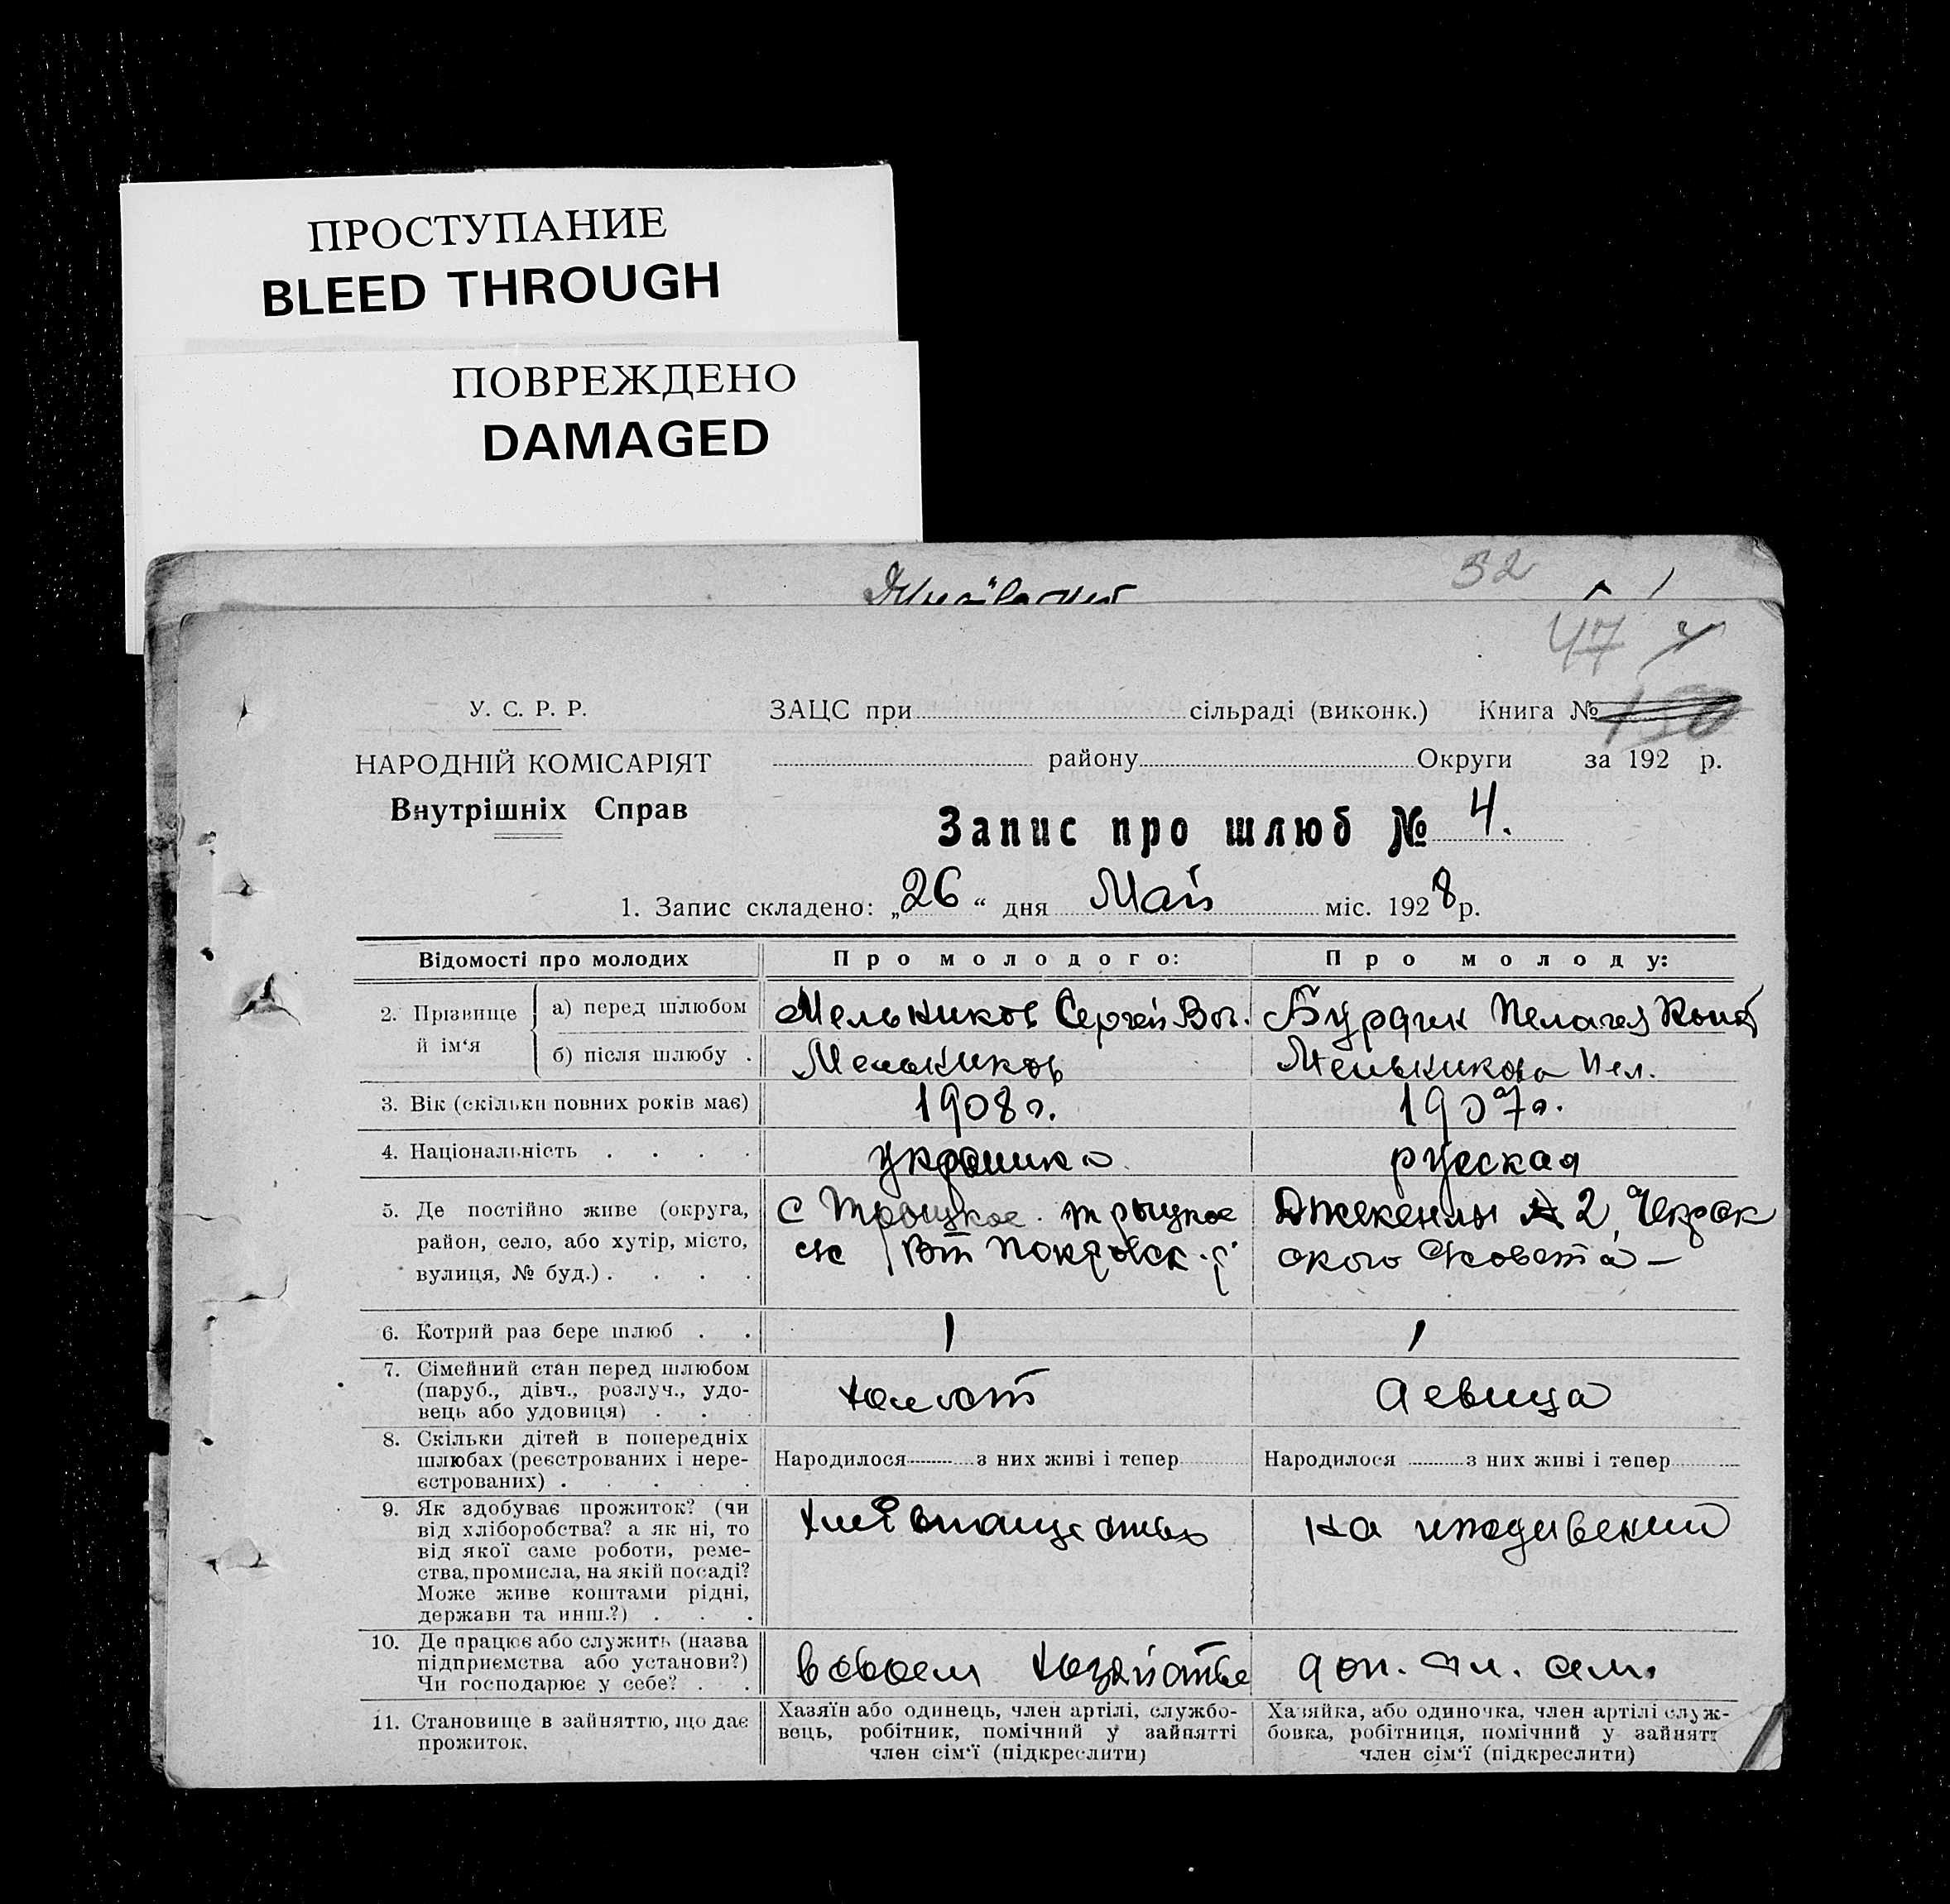 ПРОСТУПАНИЕ
BLEED THROUGH
ПОВРЕЖДЕНО
DAMAGED
52
47
У. С. Р. Р.
ЗАЦС при сільраді (виконк.) Книга №
НАРОДНІЙ КОМІСАРІЯТ
району Округи за 192 р.
Внутрішніх Справ
Запис про шлюб № 4.
1. Запис складено: „26“ дня Май міс. 1928 р.
Відомості про молодих
Про молодого:
Про молоду:
2. Прізвище й ім'я
а) перед шлюбом
Мельников Сергей
Бурдик Пелагея
б) після шлюбу .
Мельников
Мельникова Пел.
3. Вік (скільки повних років має)
1908 г.
1907 г.
4. Національність . . . .
русская
5. Де постійно живе (округа,
район, село, або хутір, місто,
вулиця, № буд.) . . . .
с Троицкое
Покровск. р
2
6. Котрий раз бере шлюб . .
1
1
7. Сімейний стан перед шлюбом
(паруб., дівч., розлуч., удо-
вець або удовиця) . . .
холост
девица
8. Скільки дітей в попередніх
шлюбах (реєстрованих і нере-
єстрованих) . . . . .
Народилося з них живі і тепер
Народилося з них живі і тепер
9. Як здобуває прожиток? (чи
від хліборобства? а як ні, то
від якої саме роботи, реме-
ства, промисла, на якій посаді?
Може живе коштами рідні,
держави та инш.?) . . .
на иждивении
10. Де працює або служить (назва
підприємства або установи?)
Чи господарює у себе? . .
в своем хозяйстве
11. Становище в зайняттю, що дає
прожиток.
Хазяїн або одинець, член артілі, службо-
вець, робітник, помічний у зайнятті
член сім'ї (підкреслити)
Хазяйка, або одиночка, член артілі служ-
бовка, робітниця, помічний у зайнятт
член сім'ї (підкреслити)